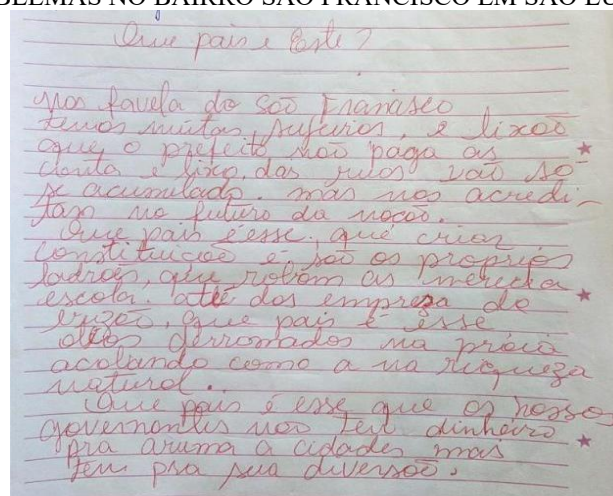 BLEMAS NO BAIRRO SÃO FRANCISCO EM SÃO LU
Que pais e Este?
nos favela do São Francisco
temos muitas sujeiros, e lixoõ
que o prefeito não paga as
conta e lixo das ruos vaõ so
se acumulado. mas nos acredi-
tam no futuro da nocoõ.
Que pais é esse, que criar
constituicoe e soõ os proprios
ladroes, que robam as merecia
escola. até dos empresa de
que pais é esse
oleos derromados na práia
acabando como a na riqueza
natural..
Que pais é esse que os nossos
governontes noo tem dinheiro
pra aruma a cidades mais
tem pra sua diversoõ.